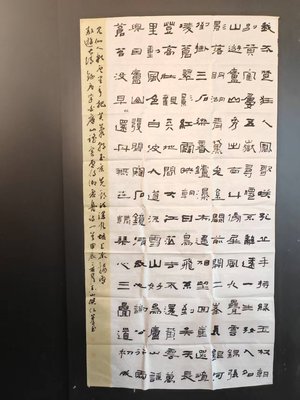 我本楚狂人鳳歌笑孔丘手持綠玉杖朝
別黃鶴樓五嶽尋仙不辭遠一生好入名
山遊廬山秀出南斗傍屏風九疊雲錦張
影落明湖青黛光金闕前開二峰長銀河
倒掛三石梁香爐瀑布遙相望迴崖沓嶂
凌蒼蒼翠影紅霞映朝日鳥飛不到吳天長
登高壯觀天地間大江茫茫去不還黃雲萬
里動風色白波九道流雪山好為廬山謠
興因廬山發閑窺石鏡清我心謝公行處
蒼苔沒早服還丹無世情琴心三疊道初成
見仙人彩雲里手把芙蓉朝玉京先期汗漫九垓上願接盧
敖遊太清 李白廬山謠寄盧侍御虛舟一首甲辰